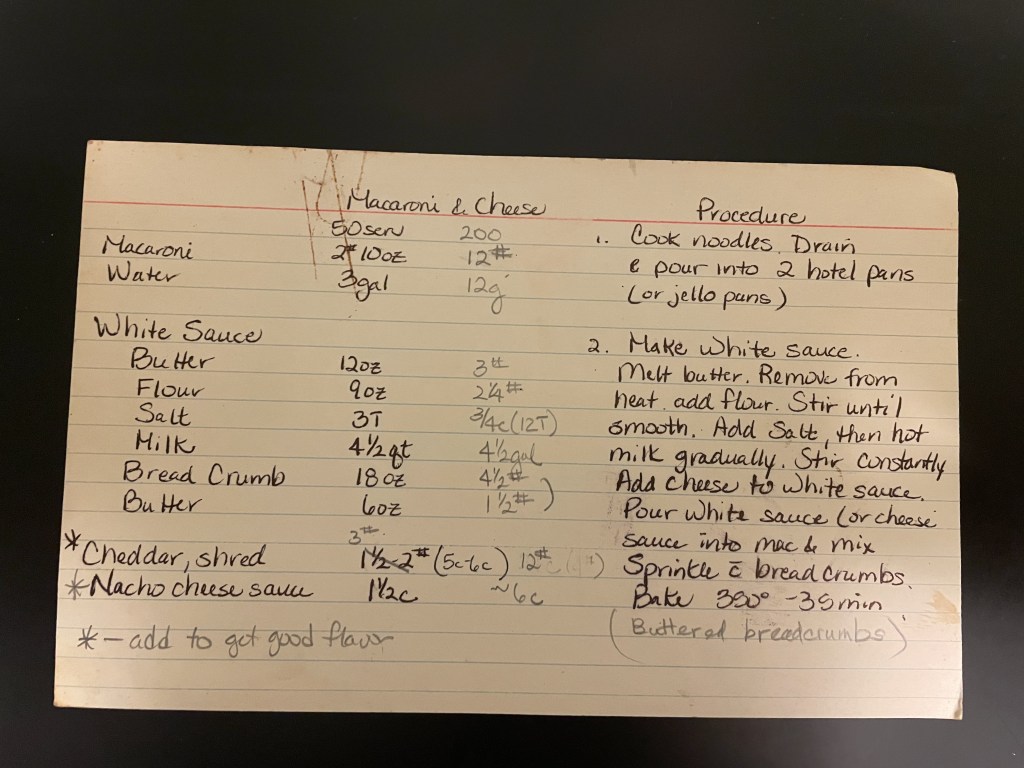 Macaroni & Cheese
50 serv 200
Macaroni 2# 10oz 12#
Water 3gal 12g
White Sauce
Butter 12oz 3#
Flour 9oz 2¼#
Salt 3T ¾c (12T)
Milk 4½qt 4½gal
Bread Crumb 18oz 4½#
Butter 6oz 1½# )
3#
* Cheddar, shred 1½-2# (5c-6c) 12#
* Nacho cheese sauce 1½c ~6c
* – add to get good flavor
Procedure
1. Cook noodles. Drain
& pour into 2 hotel pans
(or jello pans)
2. Make white sauce.
Melt butter. Remove from
heat. add flour. Stir until
smooth. Add Salt, then hot
milk gradually. Stir constantly
Add cheese to white sauce.
Pour white sauce (or cheese
sauce into mac & mix
Sprinkle c̄ bread crumbs.
Bake 350° -35min
(Buttered breadcrumbs)